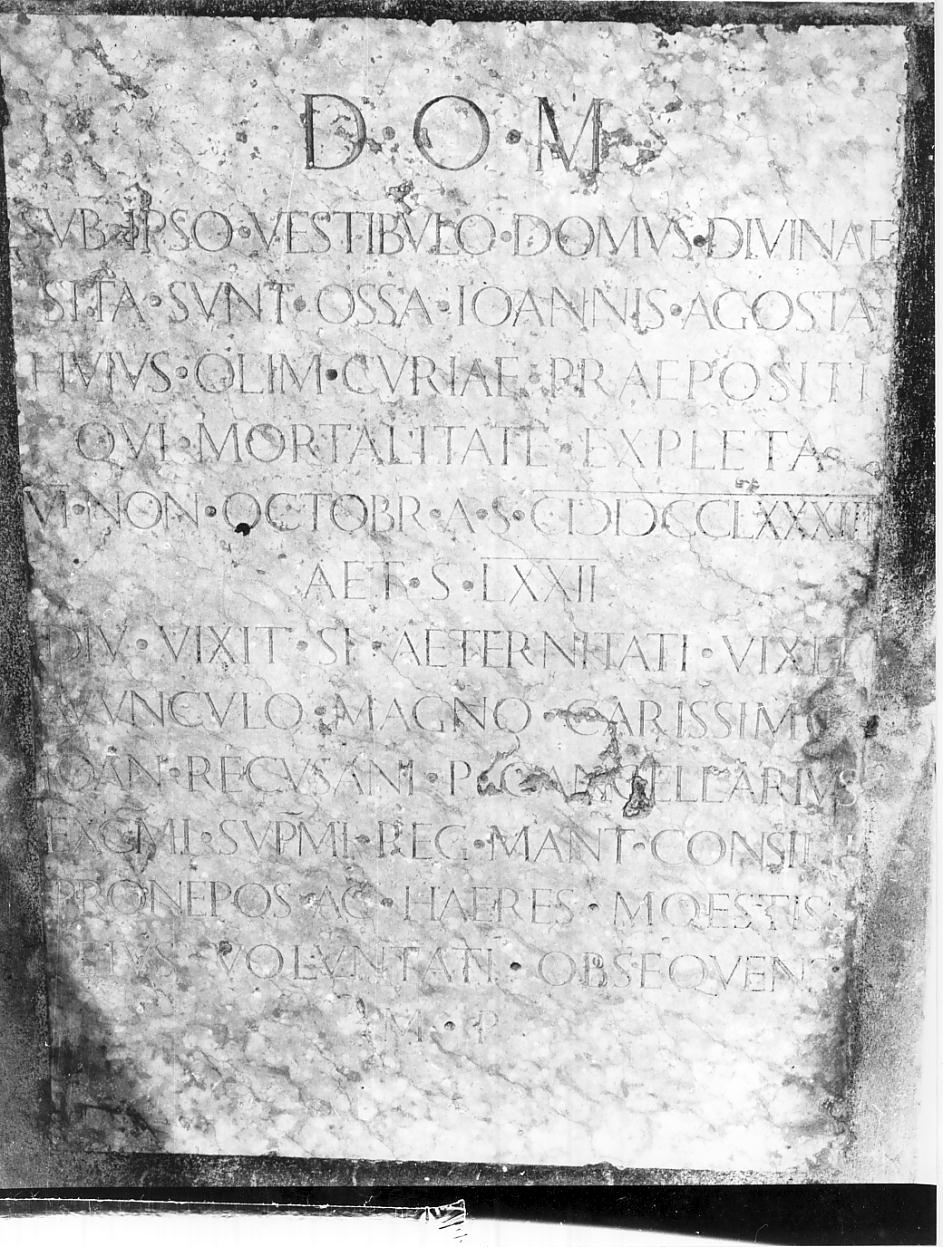 D·O·M·
SVB·IPSO·VESTIBVLO·DOMVS·DIVINAE
SITA·SVNT·OSSA·IOANNIS·AGOSTA
HVIVS·OLIM·CVRIAE·PRAEPOSITI
QVI·MORTALITATE·EXPLETA
VI·NON·OCTOBR·A·S·CIƆIƆCCLXXXIII
AET·S·LXXII
DIV·VIXIT·SI·AETERNITATI·VIXIT
AVVNCVLO·MAGNO·CARISSIMO
IOAN·RECVSANI·P·CANCELLARIVS
EXCMI·SVPMI·REG·MANT·CONSILII
PRONEPOS·AC·HAERES·MOESTIS
EIVS·VOLVNTATI·OBSEQVENS
M·P